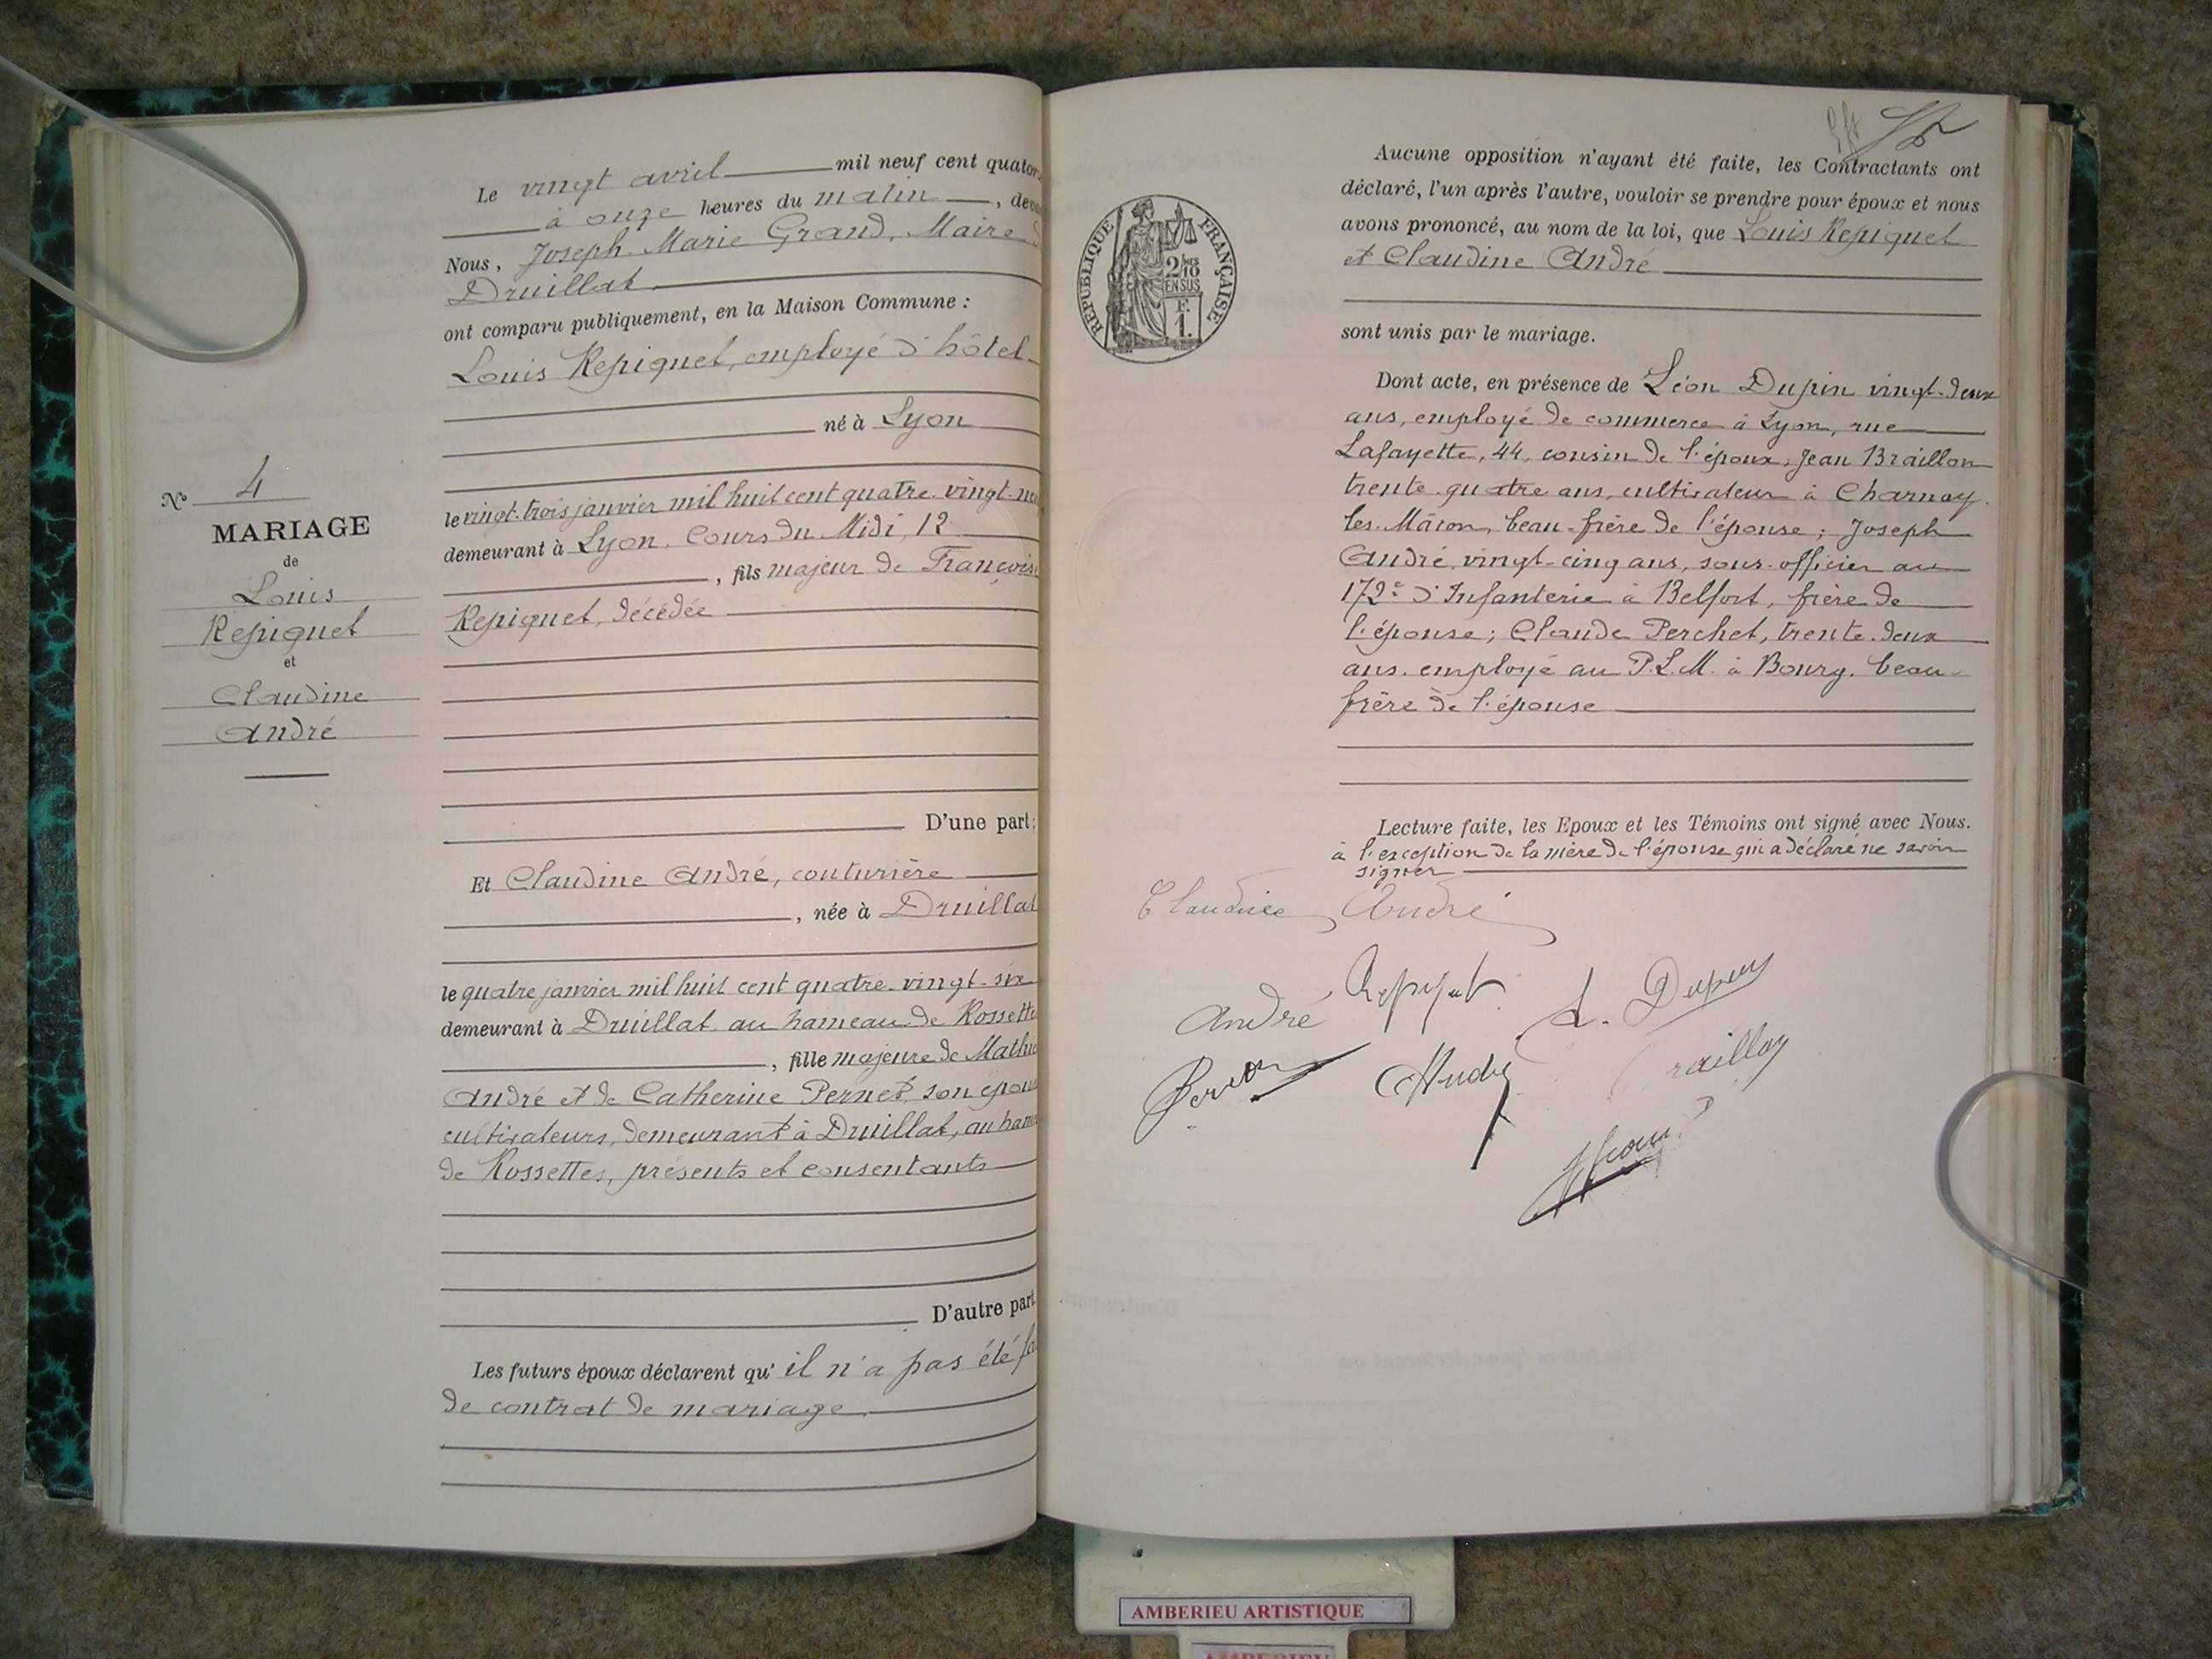 N° 4
MARIAGE
de
Louis
Repiquet
et
Claudine
André
Le vingt avril mil neuf cent quator
à onze heures du matin, deva
Nous, Joseph Marie Grand, Maire d
Druillat
ont comparu publiquement, en la Maison Commune :
Louis Repiquet, employé d'hôtel
né à Lyon
le vingt-trois janvier mil huit cent quatre-vingt-neu
demeurant à Lyon, Cours du Midi, 12
, fils majeur de Françoise
Repiquet, décédée
D'une part;
Et Claudine André, couturière
, née à Druillat
le quatre janvier mil huit cent quatre-vingt-six
demeurant à Druillat, au hameau de Rossette
, fille majeure de Mathie
André et de Catherine Pernet, son épou
cultivateurs, demeurant à Druillat, au ham
de Rossettes, présents et consentants
D'autre part
Les futurs époux déclarent qu'il n'a pas été fa
de contrat de mariage.
REPUBLIQUE FRANÇAISE
2/10
EN SUS
F.
1.
Aucune opposition n'ayant été faite, les Contractants ont
déclaré, l'un après l'autre, vouloir se prendre pour époux et nous
avons prononcé, au nom de la loi, que Louis Repiquet
et Claudine André
sont unis par le mariage.
Dont acte, en présence de Léon Dupin vingt-deux
ans, employé de commerce à Lyon, rue
Lafayette, 44, cousin de l'époux; Jean Braillon
trente-quatre ans, cultivateur à Charnay-
les-Mâcon, beau-frère de l'épouse; Joseph
André, vingt-cinq ans, sous-officier au
172e d'Infanterie à Belfort, frère de
l'épouse; Claude Perchet, trente-deux
ans, employé au P.L.M. à Bourg, beau-
frère de l'épouse
Lecture faite, les Epoux et les Témoins ont signé avec Nous.
à l'exception de la mère de l'épouse qui a déclaré ne savoir
signer
Claudine André
André Repiquet L. Dupin
André
AMBERIEU ARTISTIQUE
AMBERIEU